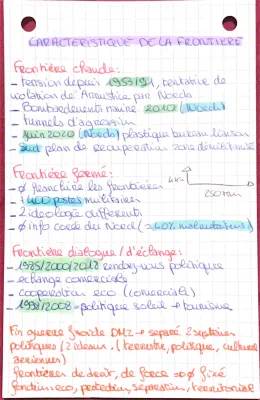 CARACTERISTIQUE DE LA FRONTIERE
Frontière chaude:
- tension depuis 1953/54, tentative de
violation de l'Armistice par Nord
- Bombardement marine 2010 (Nord)
- tunnels d'agression
- juin 2020 (Nord) plastique bureau liaison
- Sud plan de recuperation zone démilitarisé
Frontière fermé:
- Ø les frontières
- + 400 postes militaires
4km
250km
- 2 ideologie differents
- Ø info coréé du Nord
Frontière dialogue / d'échange:
- 1985/2000/2018 rendez-vous politique
- echange commerciale
- cooperation eco (comerciale)
- 1998/2008 - politique soleil → tourisme
Fin guerre froide DMZ → separé 2 systemes
politiques (terrestre, politique, culturelle
aeriennes)
frontières de droit, de force → Ø fixé
fonction eco, protection, separation, territorial